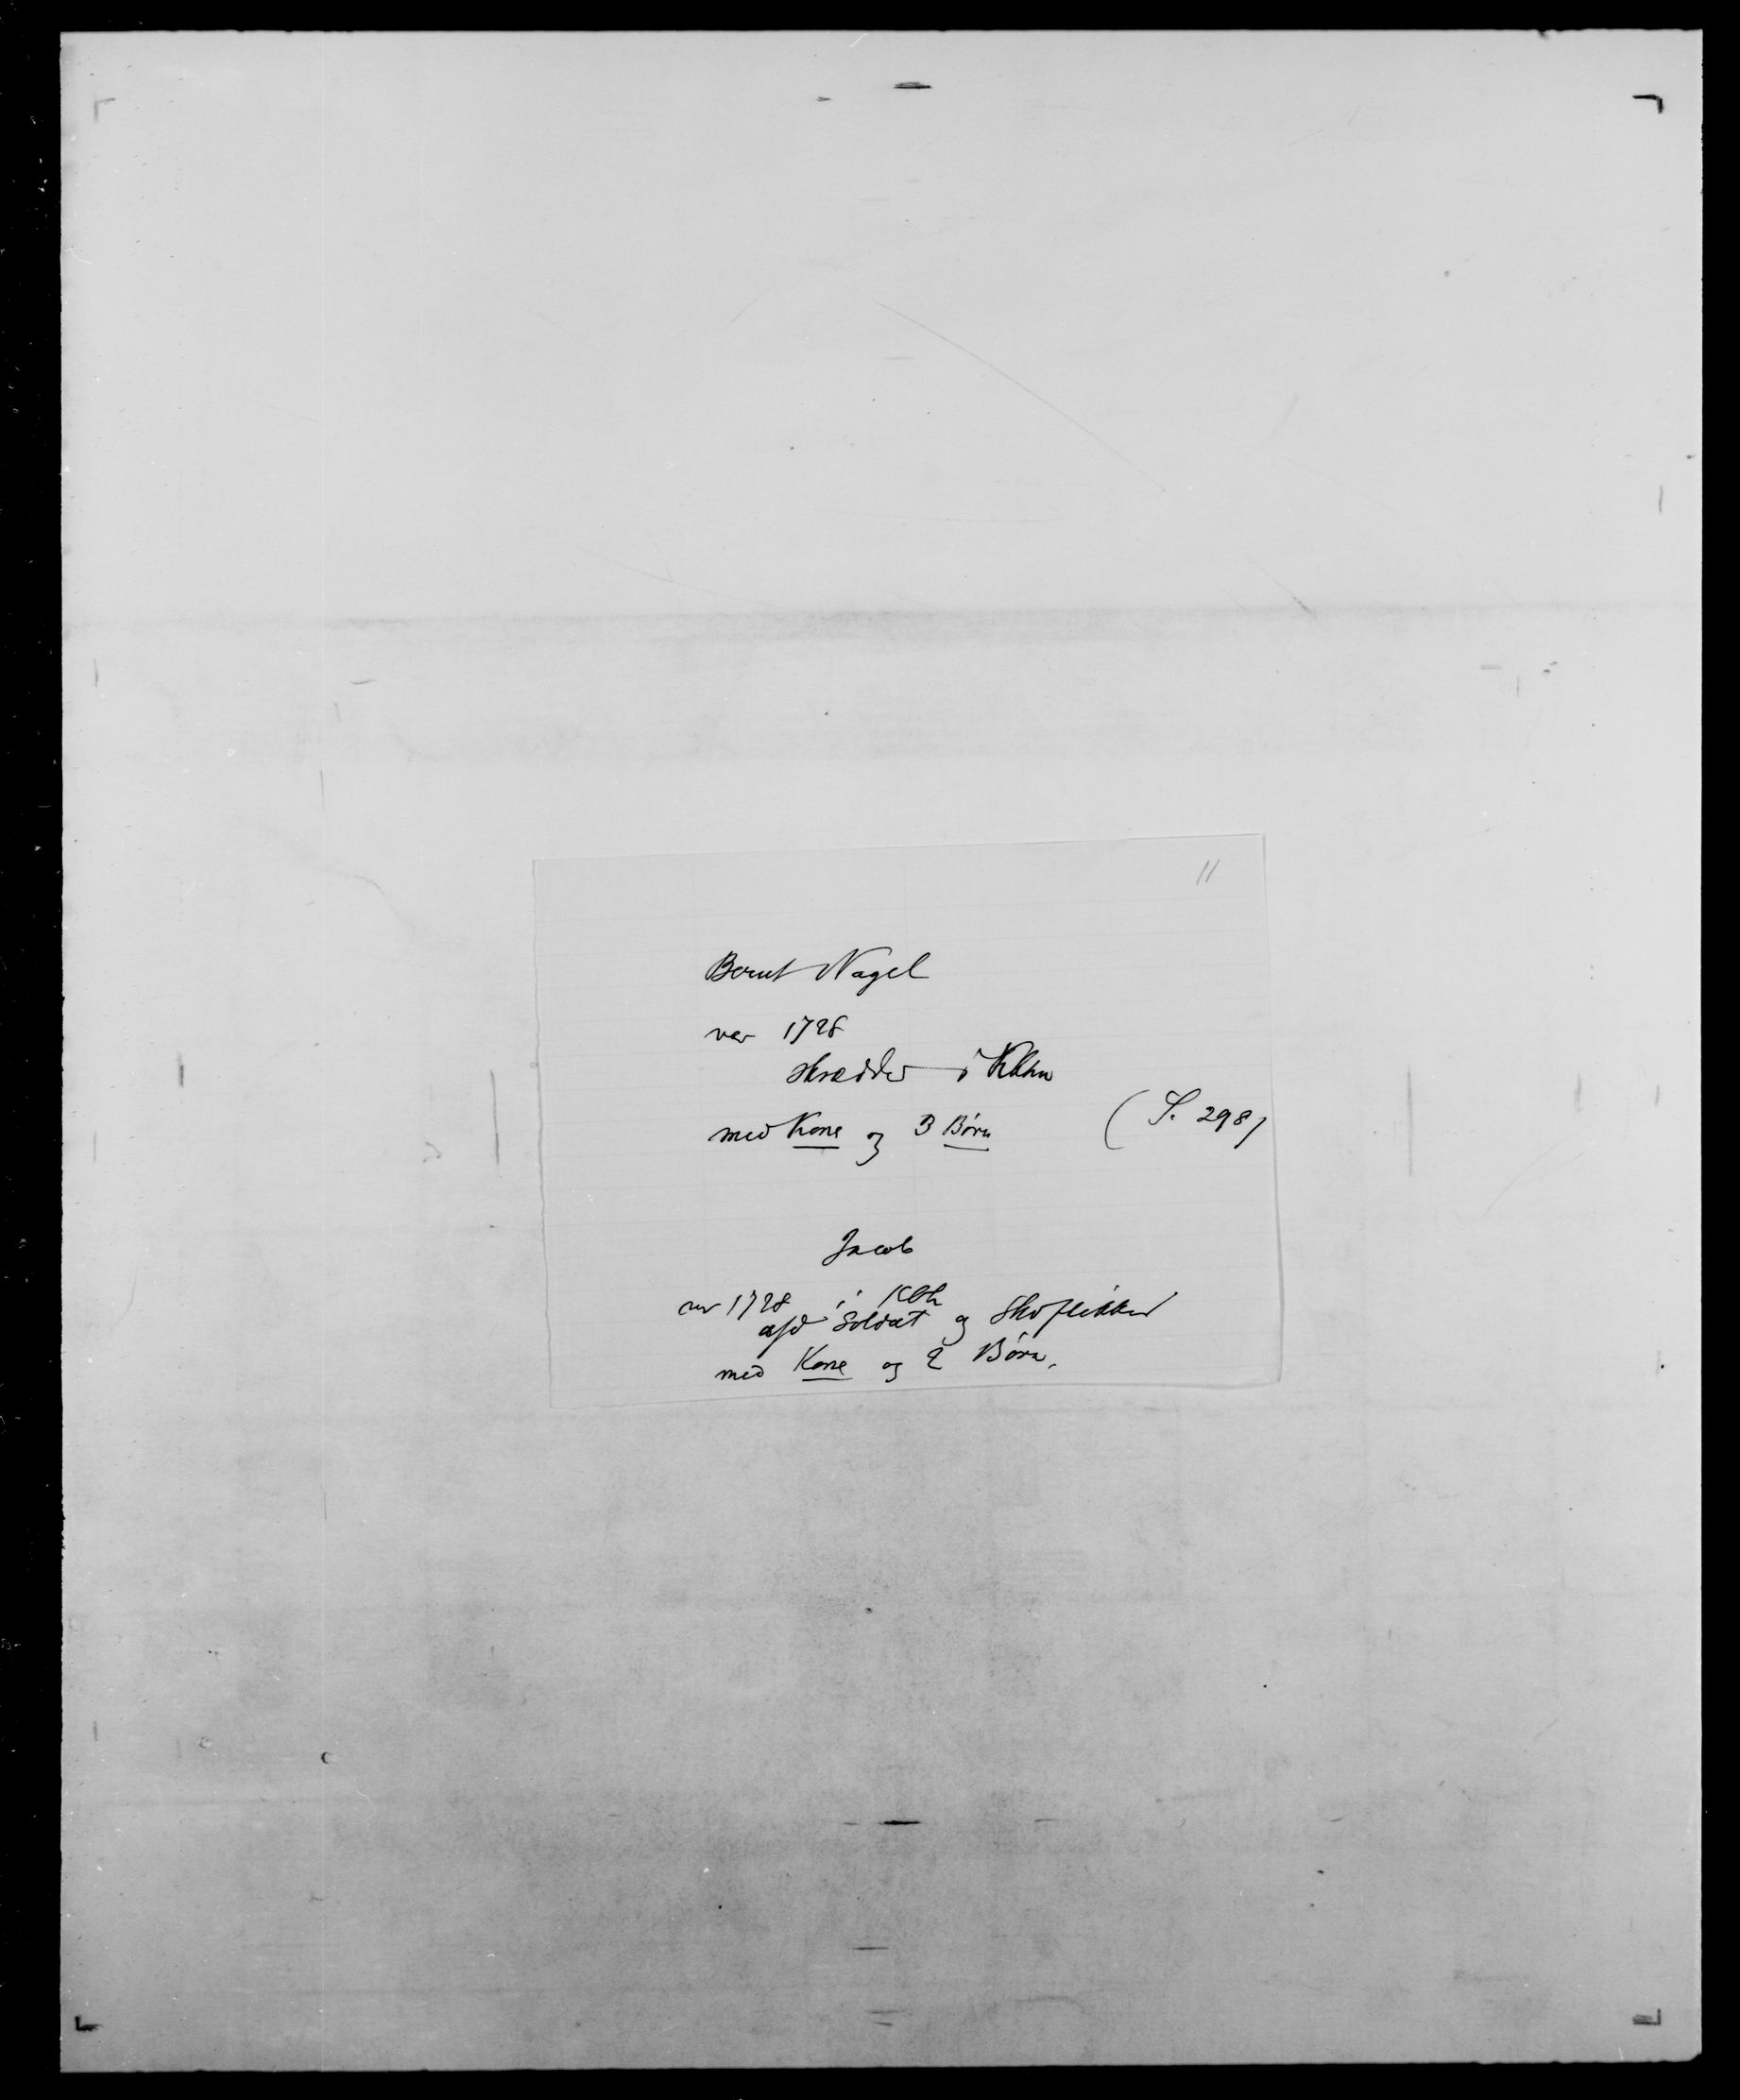 11
Bernt Nagel
var 1728
skrædder i Kbhn
med Kone og 3 Børn (S. 298)
Jacob
var 1728 i Kbh
afsk Soldat og Skoflikker
med Kone og 2 Børn.